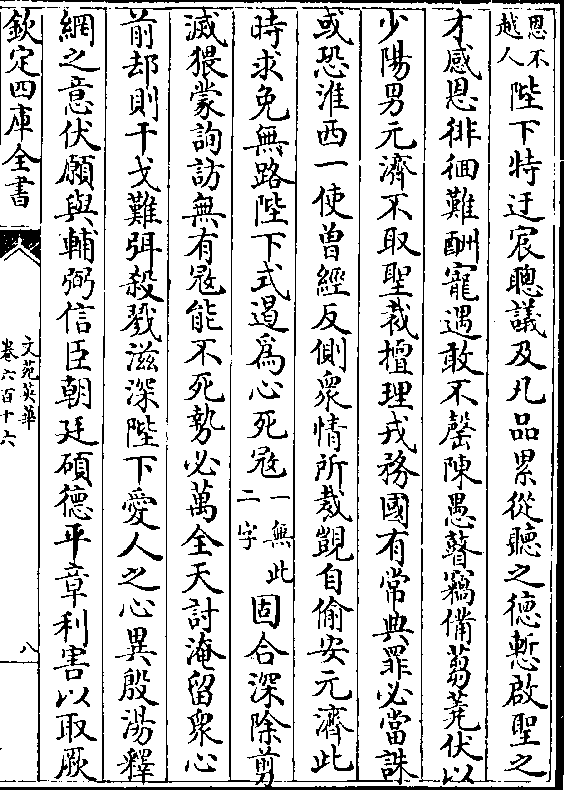 恩不越人陛下特迂宸聰議及凡品累從聽之德慙啟聖之
才感恩徘徊難酬寵遇敢不罄陳愚瞽竊備芻蕘伏以
少陽男元濟不取聖裁擅理戎務國有常典罪必當誅
或恐淮西一使曾經反側衆情所裁覬自偷安元濟此
時求免無路陛下式遏為心死寇一無此二字固合深除剪
滅猥蒙詢訪無有寇能不死勢必萬全天討淹留衆心
前却則干戈難弭殺戮滋深陛下愛人之心異殷湯釋
網之意伏願與輔弼信臣朝廷碩德平章利害以取厥
欽定四庫全書
文苑英華
卷六百十六
八